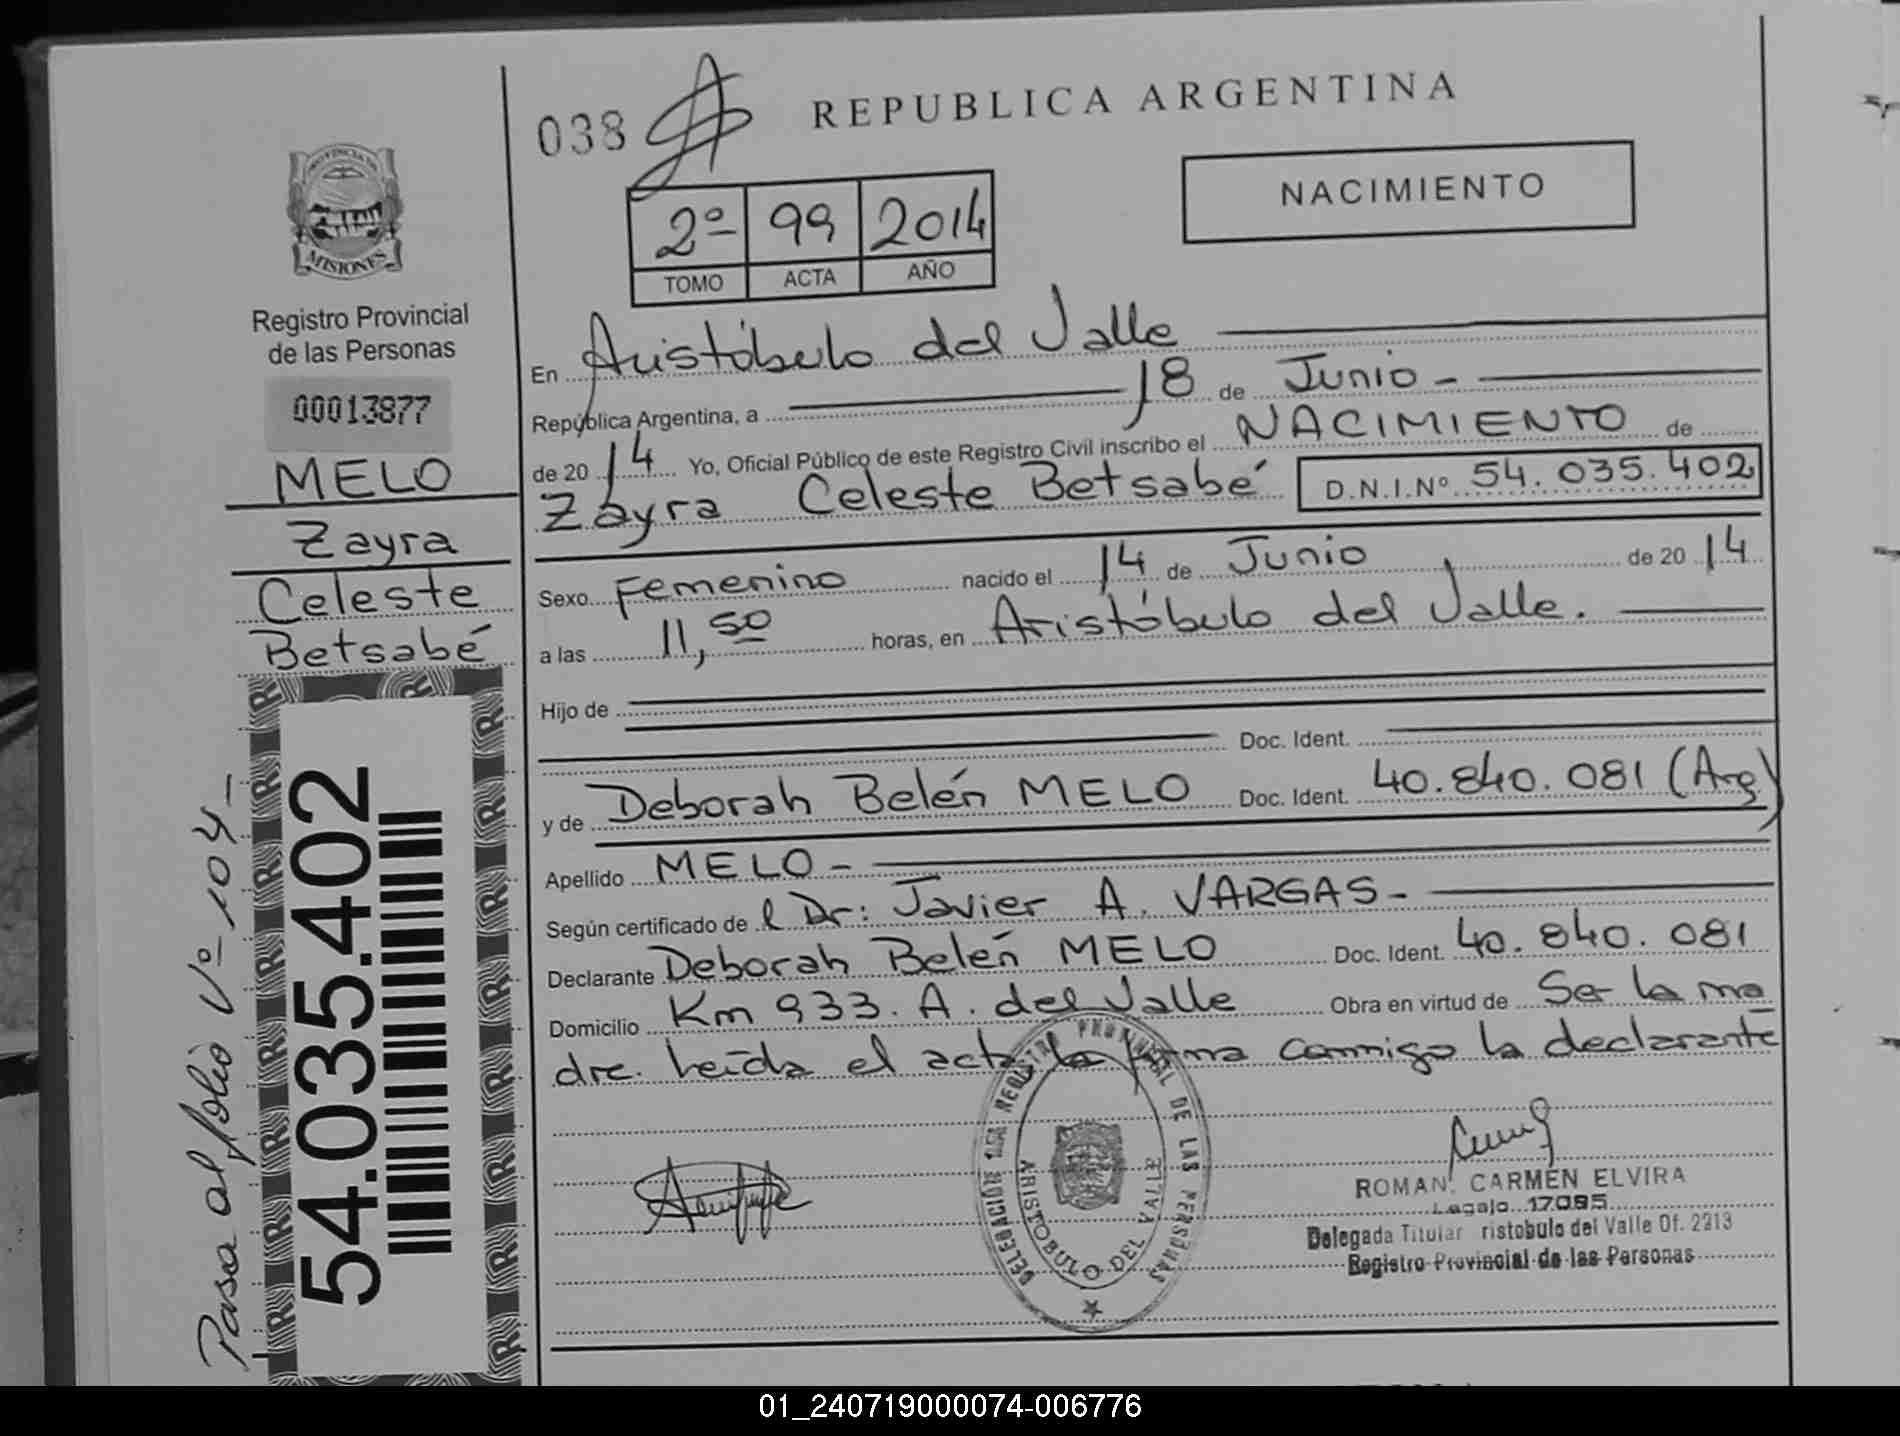 PROVINCIA DE
MISIONES
Registro Provincial
de las Personas
00013877
MELO
Zayra
Celeste
Betsabé
54.035.402
Pasa al folio Nº 104-
038
REPUBLICA ARGENTINA
2º 99 2014
TOMO ACTA AÑO
NACIMIENTO
En Aristóbulo del Valle
República Argentina, a 18 de Junio -
de 20 14 Yo, Oficial Público de este Registro Civil inscribo el NACIMIENTO de
Zayra Celeste Betsabé D.N.I.Nº 54.035.402
Sexo Femenino nacido el 14 de Junio de 20 14
a las 11,50 horas, en Aristóbulo del Valle.
Hijo de
Doc. Ident.
y de Deborah Belén MELO Doc. Ident. 40.840.081 (Arg)
Apellido MELO -
Según certificado de l Dr: Javier A. VARGAS -
Declarante Deborah Belén MELO Doc. Ident. 40.840.081
Domicilio Km 933. A. del Valle Obra en virtud de Ser la ma
dre. Leída el acta la firma conmigo la declarante
DELEGACION DEL REGISTRO PROVINCIAL DE LAS PERSONAS
ARISTOBULO DEL VALLE
ROMAN. CARMEN ELVIRA
Legajo 17095
Delegada Titular ristobulo del Valle Of. 2213
Registro Provincial de las Personas
01_240719000074-006776